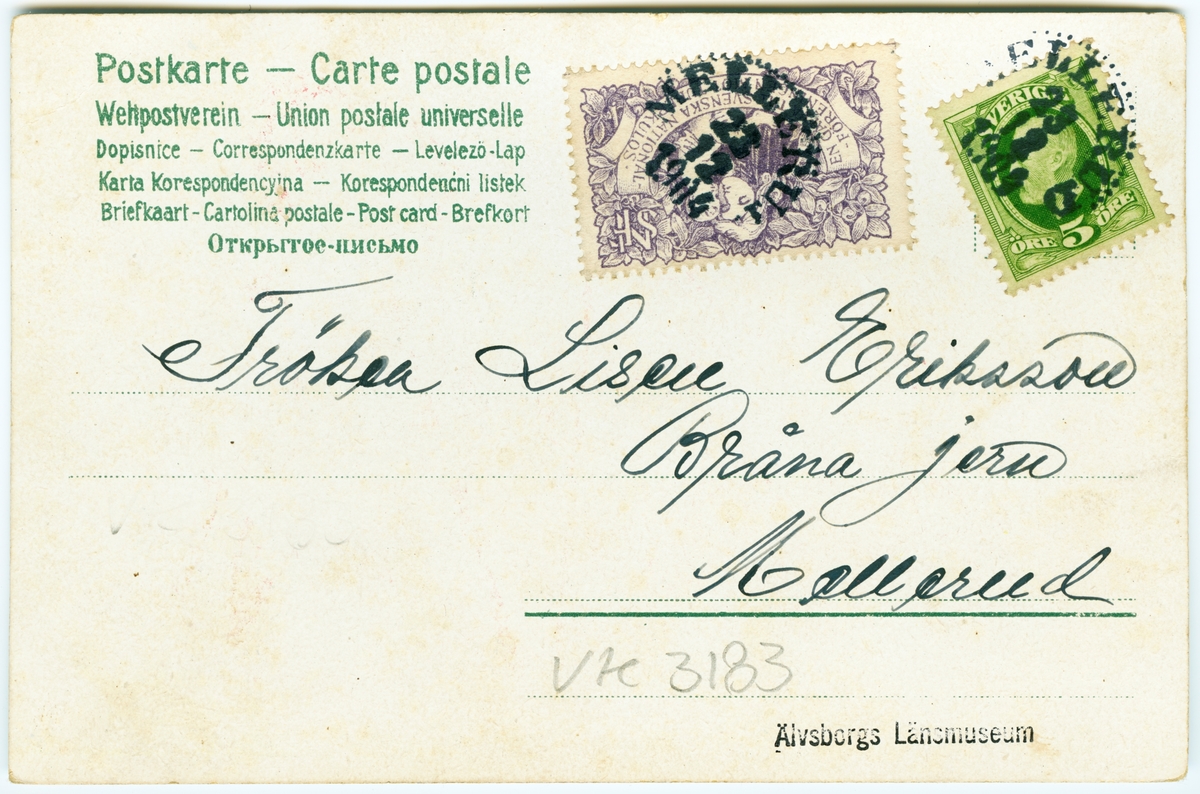 Postkarte — Carte postale
Weltpostverein — Union postale universelle
Dopisnice — Correspondenzkarte — Levelezö-Lap
Karta Korespondencyjna — Korespondenčni listek
Briefkaart - Cartolina postale - Post card - Brefkort
Открытое-письмо
MELLERUD
23
12
1904
EN
SVENSKA
NATIONAL-
FÖR
MELLERUD
23
12
1904
SVERIGE
ÖRE 5 ÖRE
Fröken Lisen Eriksson
Bråna jern
Mellerud
Vte 3183
Älvsborgs Länsmuseum